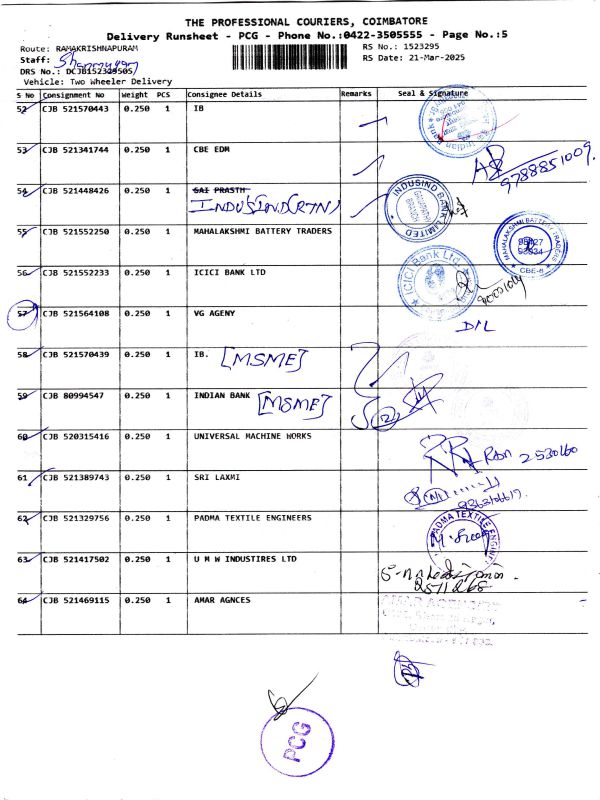 THE PROFESSIONAL COURIERS, COIMBATORE
Delivery Runsheet - PCG - Phone No.:0422-3505555 - Page No.:5
Route: RAMAKRISHNAPURAM
RS No.: 1523295
Staff:
RS Date: 21-Mar-2025
DRS No.: DCJB152329505
Vehicle: Two Wheeler Delivery
S No Consignment No Weight PCS Consignee Details Remarks Seal & Signature
52 CJB 521570443 0.250 1 IB
53 CJB 521341744 0.250 1 CBE EDM
9788851009.
54 CJB 521448426 0.250 1 SAI PRASTH
INDUSIND(RTN)
INDUSIND BANK LIMITED
55 CJB 521552250 0.250 1 MAHALAKSHMI BATTERY TRADERS
MAHALAKSHMI BATTERY TRADERS
CBE-6
56 CJB 521552233 0.250 1 ICICI BANK LTD
ICICI Bank Ltd
57 CJB 521564108 0.250 1 VG AGENY
D/L
58 CJB 521570439 0.250 1 IB. [MSME]
59 CJB 80994547 0.250 1 INDIAN BANK [MSME]
60 CJB 520315416 0.250 1 UNIVERSAL MACHINE WORKS
2530160
61 CJB 521389743 0.250 1 SRI LAXMI
62 CJB 521329756 0.250 1 PADMA TEXTILE ENGINEERS
PADMA TEXTILE ENGINEE
63 CJB 521417502 0.250 1 U M W INDUSTIRES LTD
2571268
64 CJB 521469115 0.250 1 AMAR AGNCES
PCG